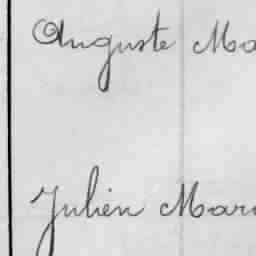 Auguste Ma
Julien Mar